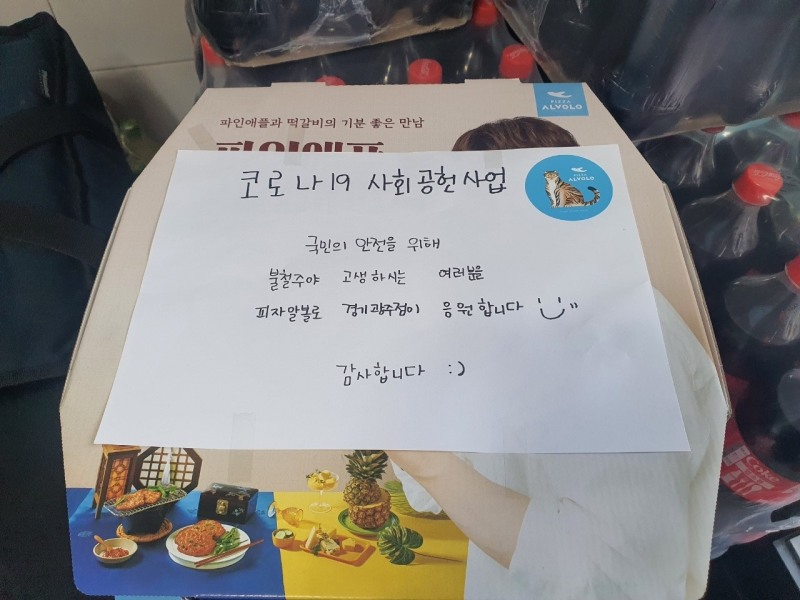 PIZZA
ALVOLO
파인애플과 떡갈비의 기분 좋은 만남
코로나19 사회공헌사업
PIZZA
ALVOLO
국민의 안전을 위해
불철주야 고생하시는 여러분을
피자알볼로 경기광주점이 응원합니다
감사합니다 :)